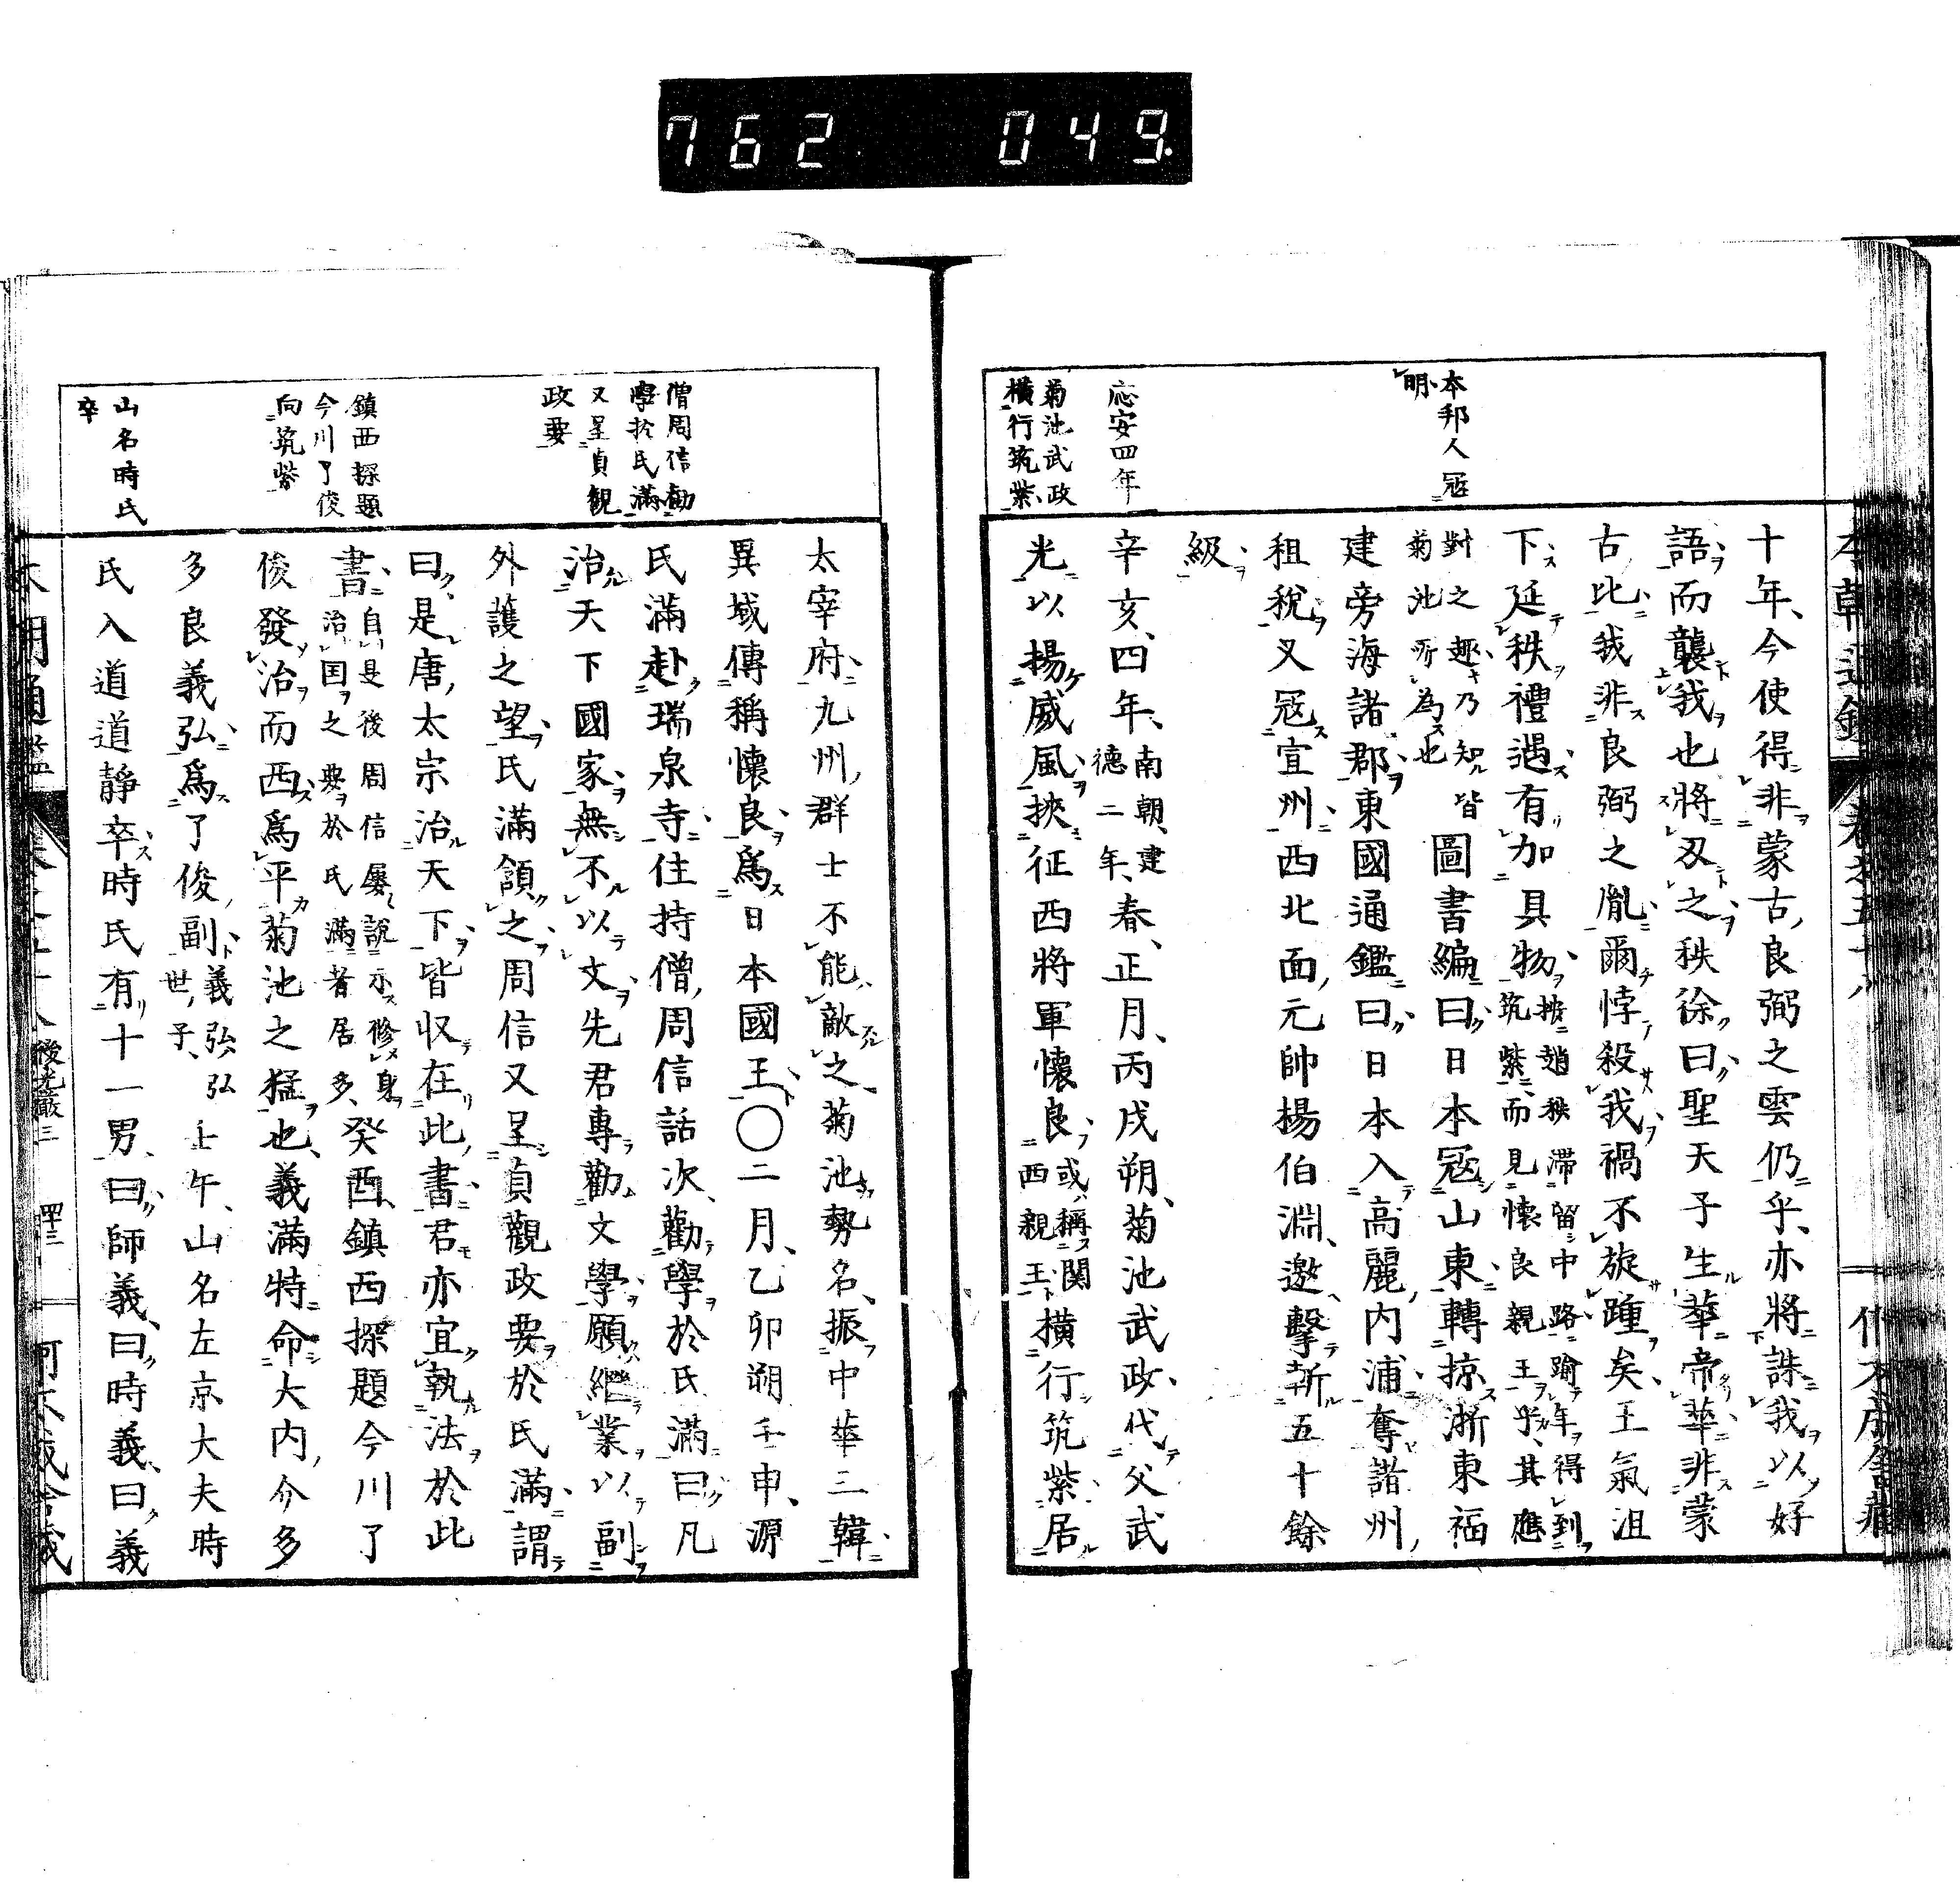 762 049.
本邦人寇
明
応安四年
菊池武政
横行筑紫
十年今使得非蒙古良弼之雲仍乎亦將誅我以好
語而襲我也將刄之秩徐曰聖天子生華帝華非蒙
古比我非良弼之胤爾悖殺我禍不旋踵矣王氣沮
下延秩禮遇有加具物按趙秩滯留中路踰年得到
筑紫而見懷良親王乎其應
對之趣乃知皆
菊池所為也
圖書編曰日本寇山東轉掠浙東福
建旁海諸郡東國通鑑曰日本入高麗内浦奪諸州
租税又寇宣州西北面元帥楊伯淵邀擊斬五十餘
級
辛亥四年南朝建
德二年春正月丙戌朔菊池武政代父武
光以揚威風挾征西將軍懷良或稱関
西親王横行筑紫居
僧周信勧
學於氏滿
又呈貞観
政要
鎮西探題
今川了俊
向筑紫
山名時氏
卒
太宰府九州群士不能敵之菊池勢名振中華三韓
異域傳稱懷良爲日本國王○二月乙卯朔壬申源
氏滿赴瑞泉寺住持僧周信話次勸學於氏滿曰凡
治天下國家無不以文先君專勸文學願繼業以副
外護之望氏滿領之周信又呈貞觀政要於氏滿謂
曰是唐太宗治天下皆収在此書君亦宜執法於此
書自是後周信屢說示修身
治国之要於氏滿者居多癸酉鎮西探題今川了
俊發治而西爲平菊池之猛也義滿特命大内介多
多良義弘爲了俊副義弘弘
世子壬午山名左京大夫時
氏入道道靜卒時氏有十一男曰師義曰時義曰義